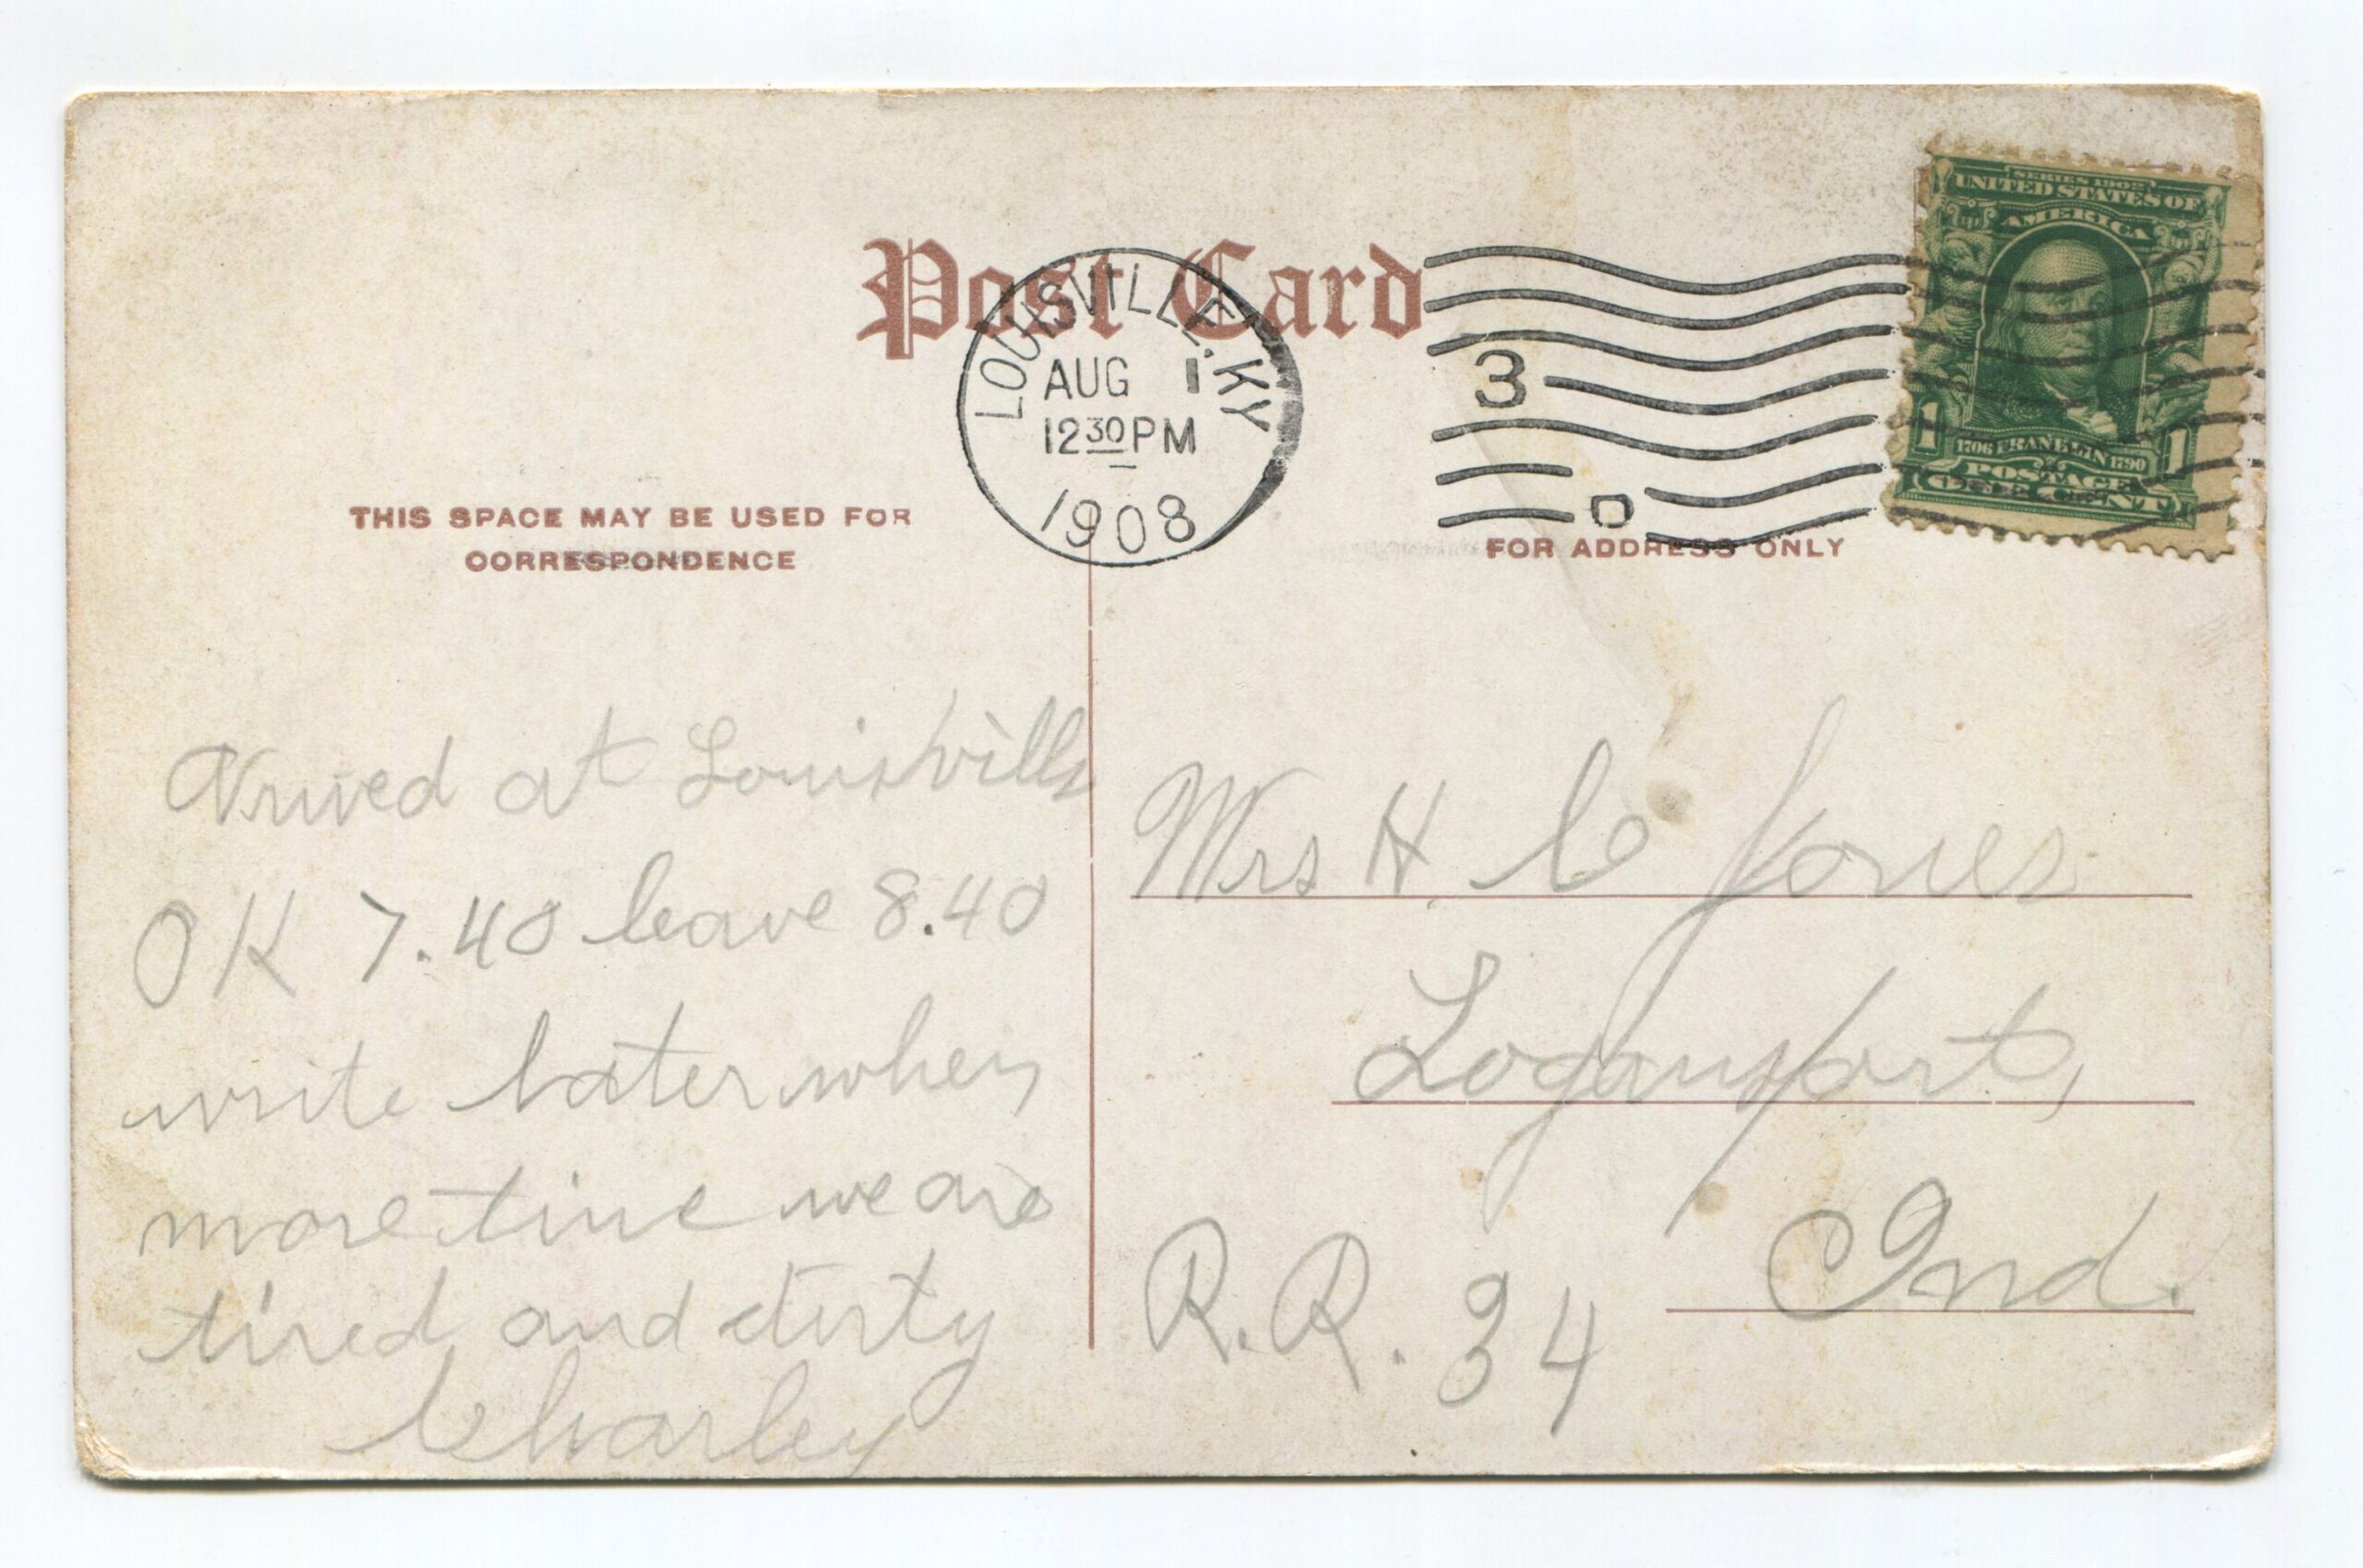 Post Card
LOUISVILLE, KY.
AUG 1
12 30 PM
1908
3
D
SERIES 1902
UNITED STATES OF
AMERICA
1 1
1706 FRANKLIN 1790
POSTAGE
ONE CENT
THIS SPACE MAY BE USED FOR
CORRESPONDENCE
FOR ADDRESS ONLY
Arrived at Louisville
OK 7.40 leave 8.40
write later when
more time we are
tired and dirty
Charley
Mrs H C Jones
Logansport,
Ind.
R.R. 34